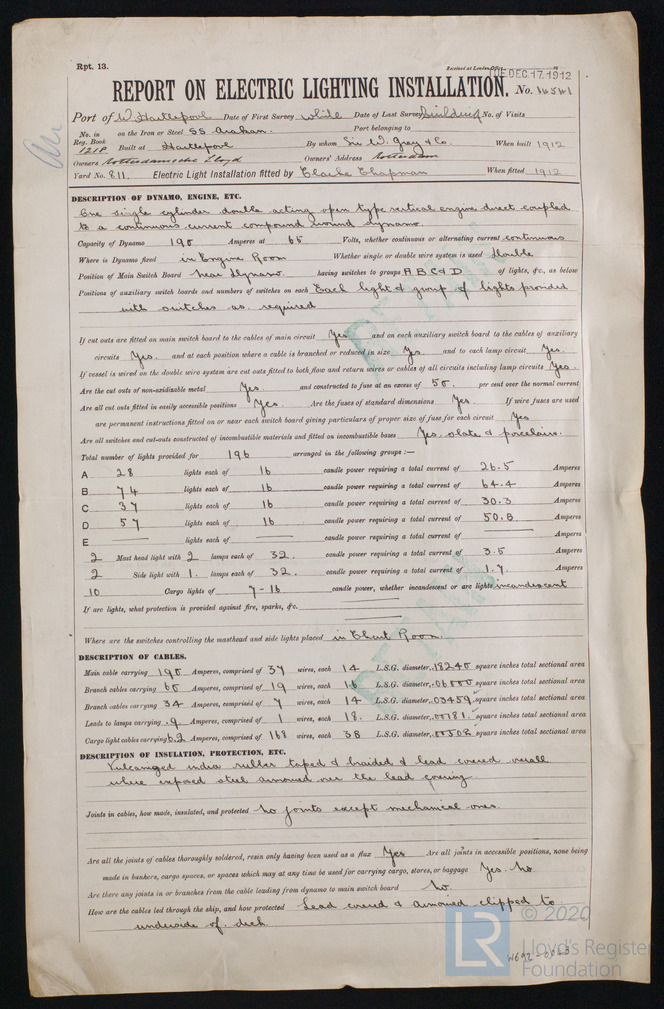 Rpt. 13.
Received at London Office TUE. DEC. 17. 1912
REPORT ON ELECTRIC LIGHTING INSTALLATION. No. 16541
Port of W. Hartlepool Date of First Survey while Date of Last Survey building No. of Visits
No. in Reg. Book 121P on the Iron or Steel SS Arakan. Port belonging to
Built at Hartlepool By whom Sir W. Gray & Co. When built 1912
Owners Rotterdamsche Lloyd Owners' Address Rotterdam
Yard No. 811. Electric Light Installation fitted by Clarke Chapman When fitted 1912
DESCRIPTION OF DYNAMO, ENGINE, ETC.
One single cylinder double acting open type vertical engine direct coupled
to a continuous current compound wound dynamo.
Capacity of Dynamo 190 Amperes at 65 Volts, whether continuous or alternating current continuous
Where is Dynamo fixed in Engine Room Whether single or double wire system is used Double
Position of Main Switch Board near Dynamo having switches to groups A B C & D of lights, &c., as below
Positions of auxiliary switch boards and numbers of switches on each Each light & group of lights provided
with switches as required
If cut outs are fitted on main switch board to the cables of main circuit Yes and on each auxiliary switch board to the cables of auxiliary
circuits Yes. and at each position where a cable is branched or reduced in size Yes and to each lamp circuit Yes.
If vessel is wired on the double wire system are cut outs fitted to both flow and return wires or cables of all circuits including lamp circuits Yes.
Are the cut outs of non-oxidizable metal Yes. and constructed to fuse at an excess of 50. per cent over the normal current
Are all cut outs fitted in easily accessible positions Yes. Are the fuses of standard dimensions Yes. If wire fuses are used
are permanent instructions fitted on or near each switch board giving particulars of proper size of fuse for each circuit Yes
Are all switches and cut-outs constructed of incombustible materials and fitted on incombustible bases Yes, slate & porcelain.
Total number of lights provided for 196 arranged in the following groups :—
A 28 lights each of 16 candle power requiring a total current of 26.5 Amperes
B 74 lights each of 16 candle power requiring a total current of 64.4 Amperes
C 37 lights each of 16 candle power requiring a total current of 30.3 Amperes
D 57 lights each of 16 candle power requiring a total current of 50.8 Amperes
E — lights each of — candle power requiring a total current of — Amperes
2 Mast head light with 2 lamps each of 32. candle power requiring a total current of 3.5 Amperes
2 Side light with 1. lamps each of 32. candle power requiring a total current of 1.7. Amperes
10 Cargo lights of 7-16 candle power, whether incandescent or arc lights incandescent
If arc lights, what protection is provided against fire, sparks, &c.
Where are the switches controlling the masthead and side lights placed in Chart Room.
DESCRIPTION OF CABLES.
Main cable carrying 190 Amperes, comprised of 37 wires, each 14 L.S.G. diameter, .18240 square inches total sectional area
Branch cables carrying 60 Amperes, comprised of 19 wires, each 16 L.S.G. diameter, .06000 square inches total sectional area
Branch cables carrying 34 Amperes, comprised of 7 wires, each 14 L.S.G. diameter, .03459 square inches total sectional area
Leads to lamps carrying .9 Amperes, comprised of 1 wires, each 18. L.S.G. diameter, .00181. square inches total sectional area
Cargo light cables carrying 6.2 Amperes, comprised of 168 wires, each 38 L.S.G. diameter, .00502 square inches total sectional area
DESCRIPTION OF INSULATION, PROTECTION, ETC.
Vulcanized india rubber taped & braided & lead covered overall
where exposed steel armoured over the lead covering
Joints in cables, how made, insulated, and protected No joints except mechanical ones.
Are all the joints of cables thoroughly soldered, resin only having been used as a flux Yes Are all joints in accessible positions, none being
made in bunkers, cargo spaces, or spaces which may at any time be used for carrying cargo, stores, or baggage Yes. No.
Are there any joints in or branches from the cable leading from dynamo to main switch board No.
How are the cables led through the ship, and how protected Lead covered & armoured clipped to
underside of deck
© 2020
LR Lloyd's Register
Foundation